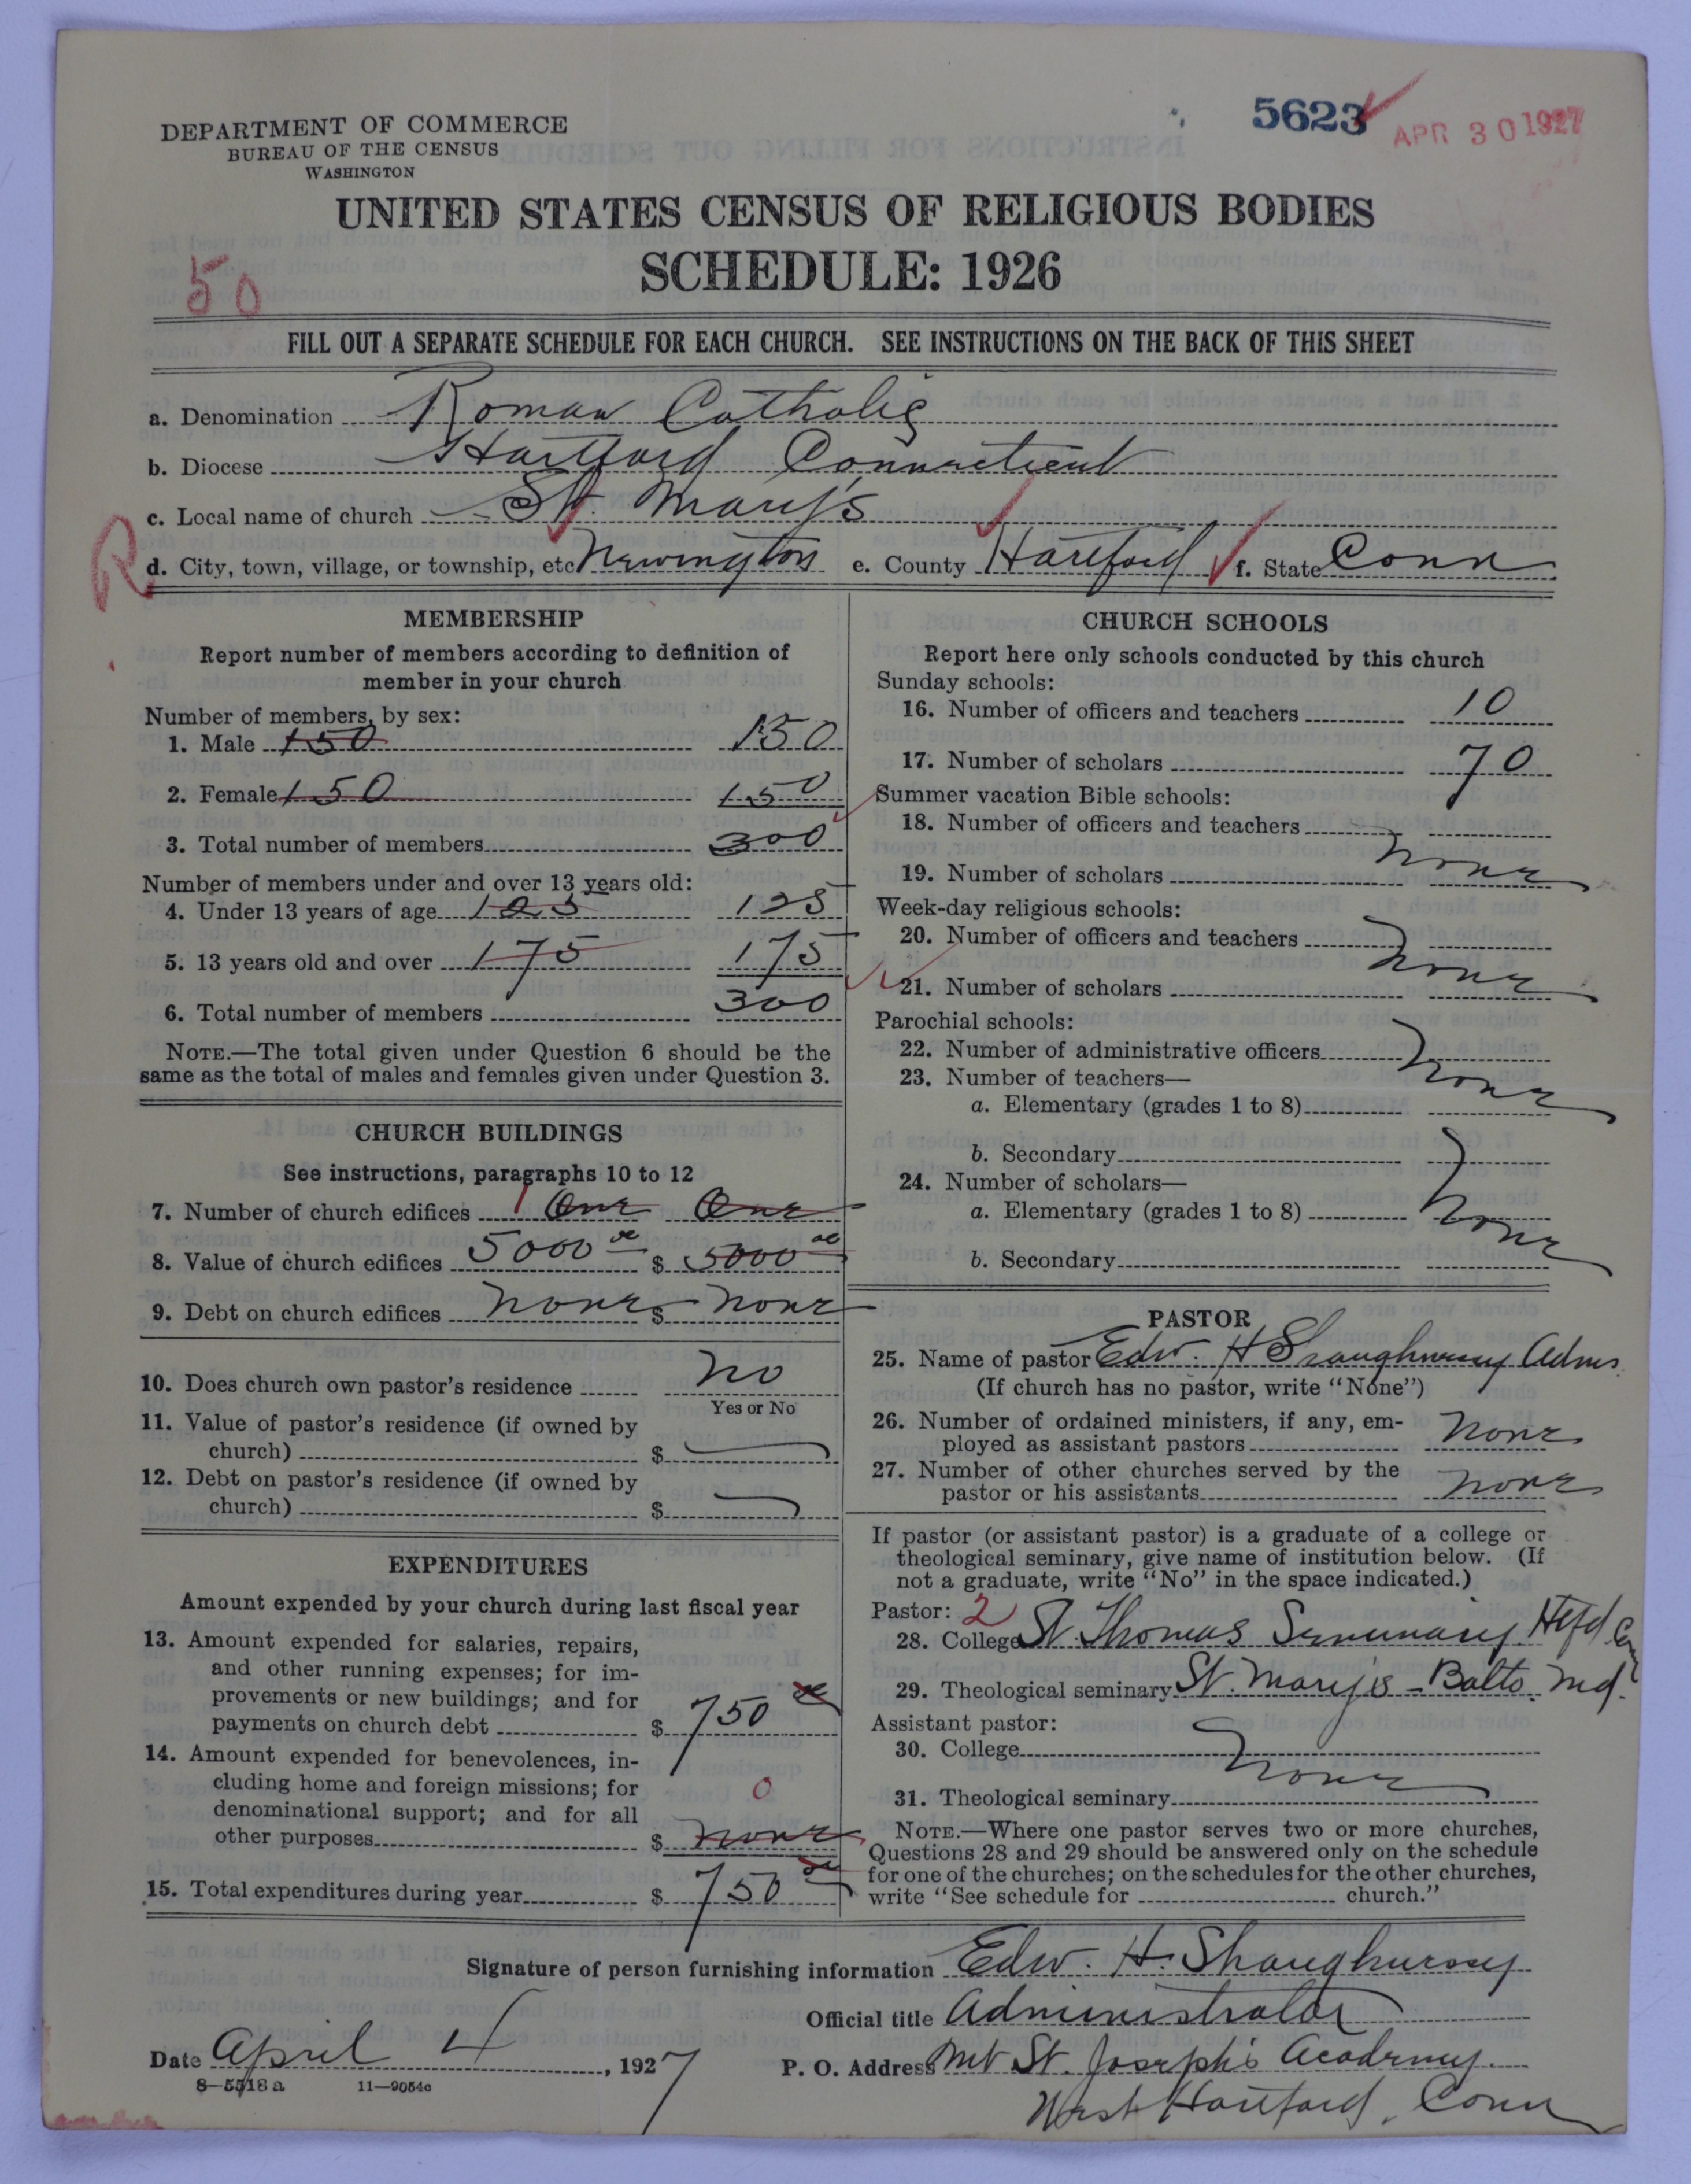 5623 APR 30 1927
DEPARTMENT OF COMMERCE
BUREAU OF THE CENSUS
WASHINGTON
UNITED STATES CENSUS OF RELIGIOUS BODIES
SCHEDULE: 1926
50
FILL OUT A SEPARATE SCHEDULE FOR EACH CHURCH. SEE INSTRUCTIONS ON THE BACK OF THIS SHEET
a. Denomination Roman Catholic
b. Diocese Hartford Connecticut
c. Local name of church St. Mary's
R
d. City, town, village, or township, etc Newington e. County Hartford f. State Conn
MEMBERSHIP
Report number of members according to definition of
member in your church
Number of members, by sex:
1. Male 150 150
2. Female 150 150
3. Total number of members 300
Number of members under and over 13 years old:
4. Under 13 years of age 125 125
5. 13 years old and over 175 175
6. Total number of members 300
NOTE.—The total given under Question 6 should be the
same as the total of males and females given under Question 3.
CHURCH BUILDINGS
See instructions, paragraphs 10 to 12
7. Number of church edifices 1 One One
8. Value of church edifices 5000 00 $ 5000 00
9. Debt on church edifices none $ none
10. Does church own pastor's residence No
Yes or No
11. Value of pastor's residence (if owned by
church) $
12. Debt on pastor's residence (if owned by
church) $
EXPENDITURES
Amount expended by your church during last fiscal year
13. Amount expended for salaries, repairs,
and other running expenses; for im-
provements or new buildings; and for
payments on church debt $ 750 00
14. Amount expended for benevolences, in-
cluding home and foreign missions; for 0
denominational support; and for all
other purposes $ none
15. Total expenditures during year $ 750 00
CHURCH SCHOOLS
Report here only schools conducted by this church
Sunday schools:
16. Number of officers and teachers 10
17. Number of scholars 70
Summer vacation Bible schools:
18. Number of officers and teachers
none
19. Number of scholars
Week-day religious schools:
20. Number of officers and teachers
none
21. Number of scholars
Parochial schools:
22. Number of administrative officers
23. Number of teachers— none
a. Elementary (grades 1 to 8)
b. Secondary
24. Number of scholars—
a. Elementary (grades 1 to 8)
none
b. Secondary
PASTOR
25. Name of pastor Edw. H Shaughnessy Adms
(If church has no pastor, write "None")
26. Number of ordained ministers, if any, em-
ployed as assistant pastors none
27. Number of other churches served by the
pastor or his assistants none
If pastor (or assistant pastor) is a graduate of a college or
theological seminary, give name of institution below. (If
not a graduate, write "No" in the space indicated.)
Pastor: 2
28. College St. Thomas Seminary Htfd Conn
29. Theological seminary St. Mary's - Balto. Md.
Assistant pastor:
30. College
none
31. Theological seminary
NOTE.—Where one pastor serves two or more churches,
Questions 28 and 29 should be answered only on the schedule
for one of the churches; on the schedules for the other churches,
write "See schedule for church."
Signature of person furnishing information Edw. H. Shaughnessy
Official title Administrator
Date April 4, 1927 P. O. Address Mt St. Joseph's Academy.
8—5518 a 11—9054c
West Hartford, Conn